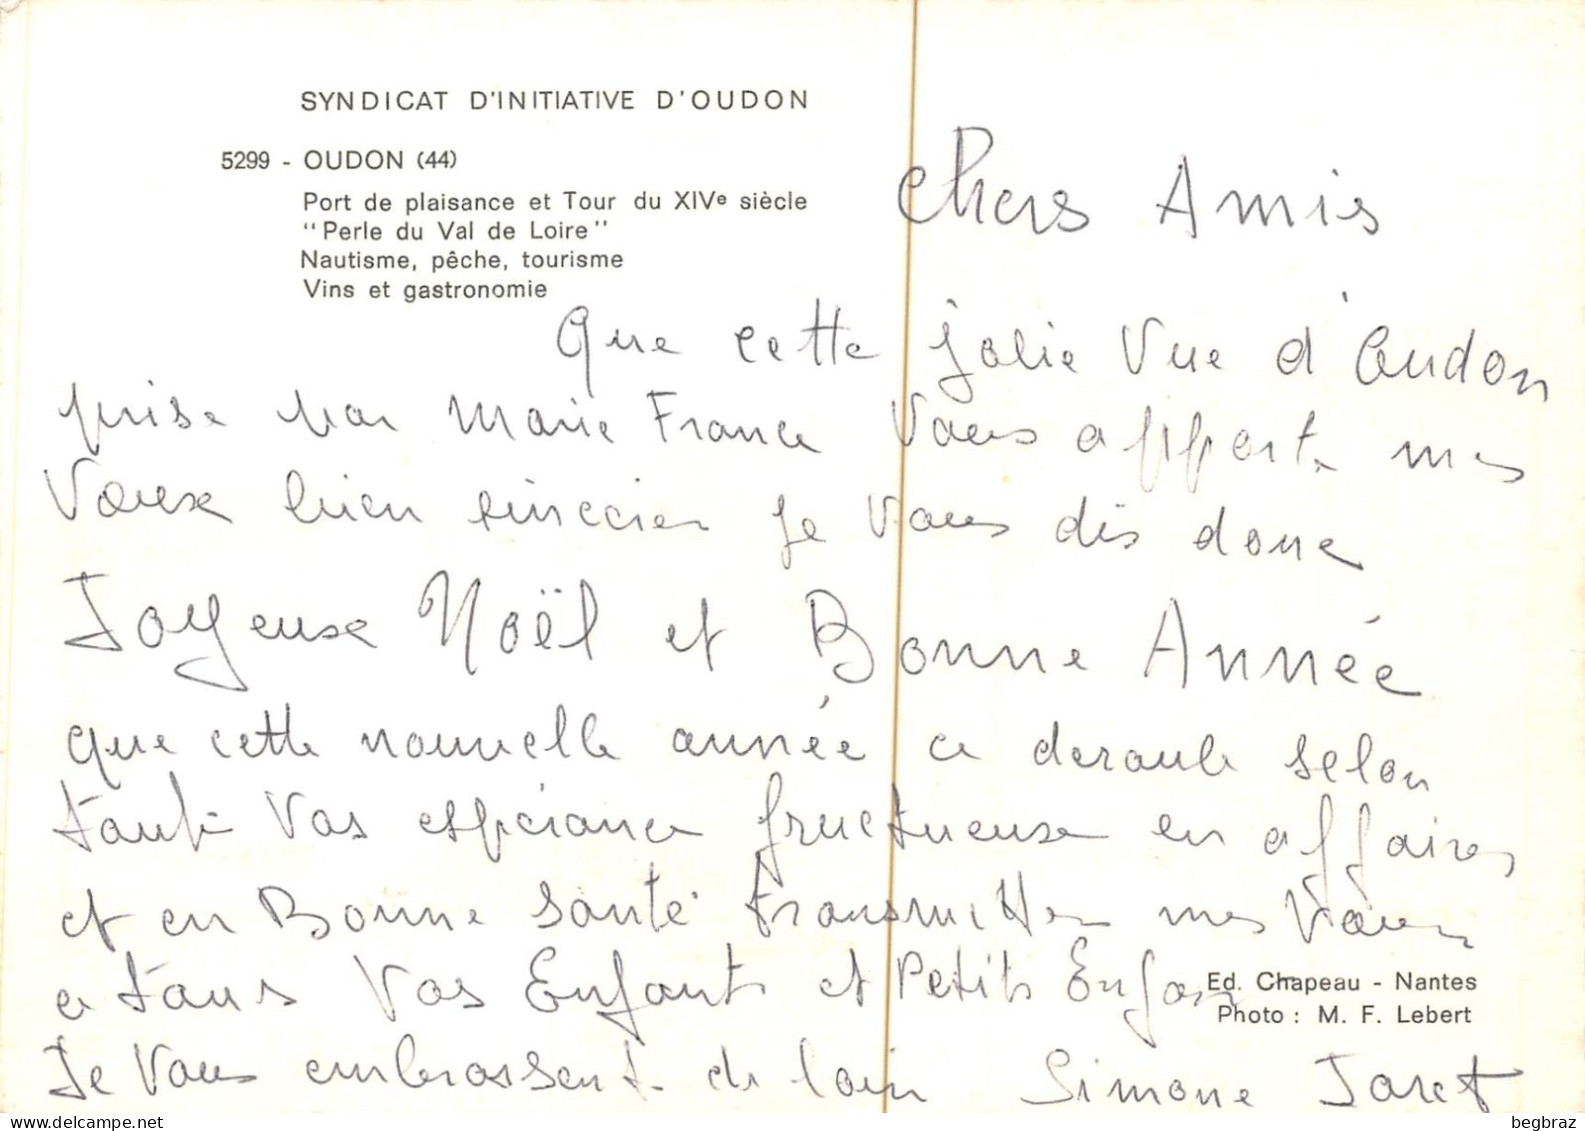 SYNDICAT D'INITIATIVE D'OUDON
5299 - OUDON (44)
Port de plaisance et Tour du XIVe siècle
"Perle du Val de Loire"
Nautisme, pêche, tourisme
Vins et gastronomie
Chers Amis
Que cette jolie Vue d'Oudon
prise par Marie France Vous apporte mes
Voeux bien sincères je Vous dis donc
Joyeuse Noël et Bonne Année
que cette nouvelle année ce deroule selon
toute Vos espérance fructueuse en affaires
et en Bonne Santé transmetter mes Vœux
a tous Vos Enfants et Petits Enfan
Ed. Chapeau - Nantes
Photo : M. F. Lebert
Je Vous embrassent de loin Simone Jaret
begbraz